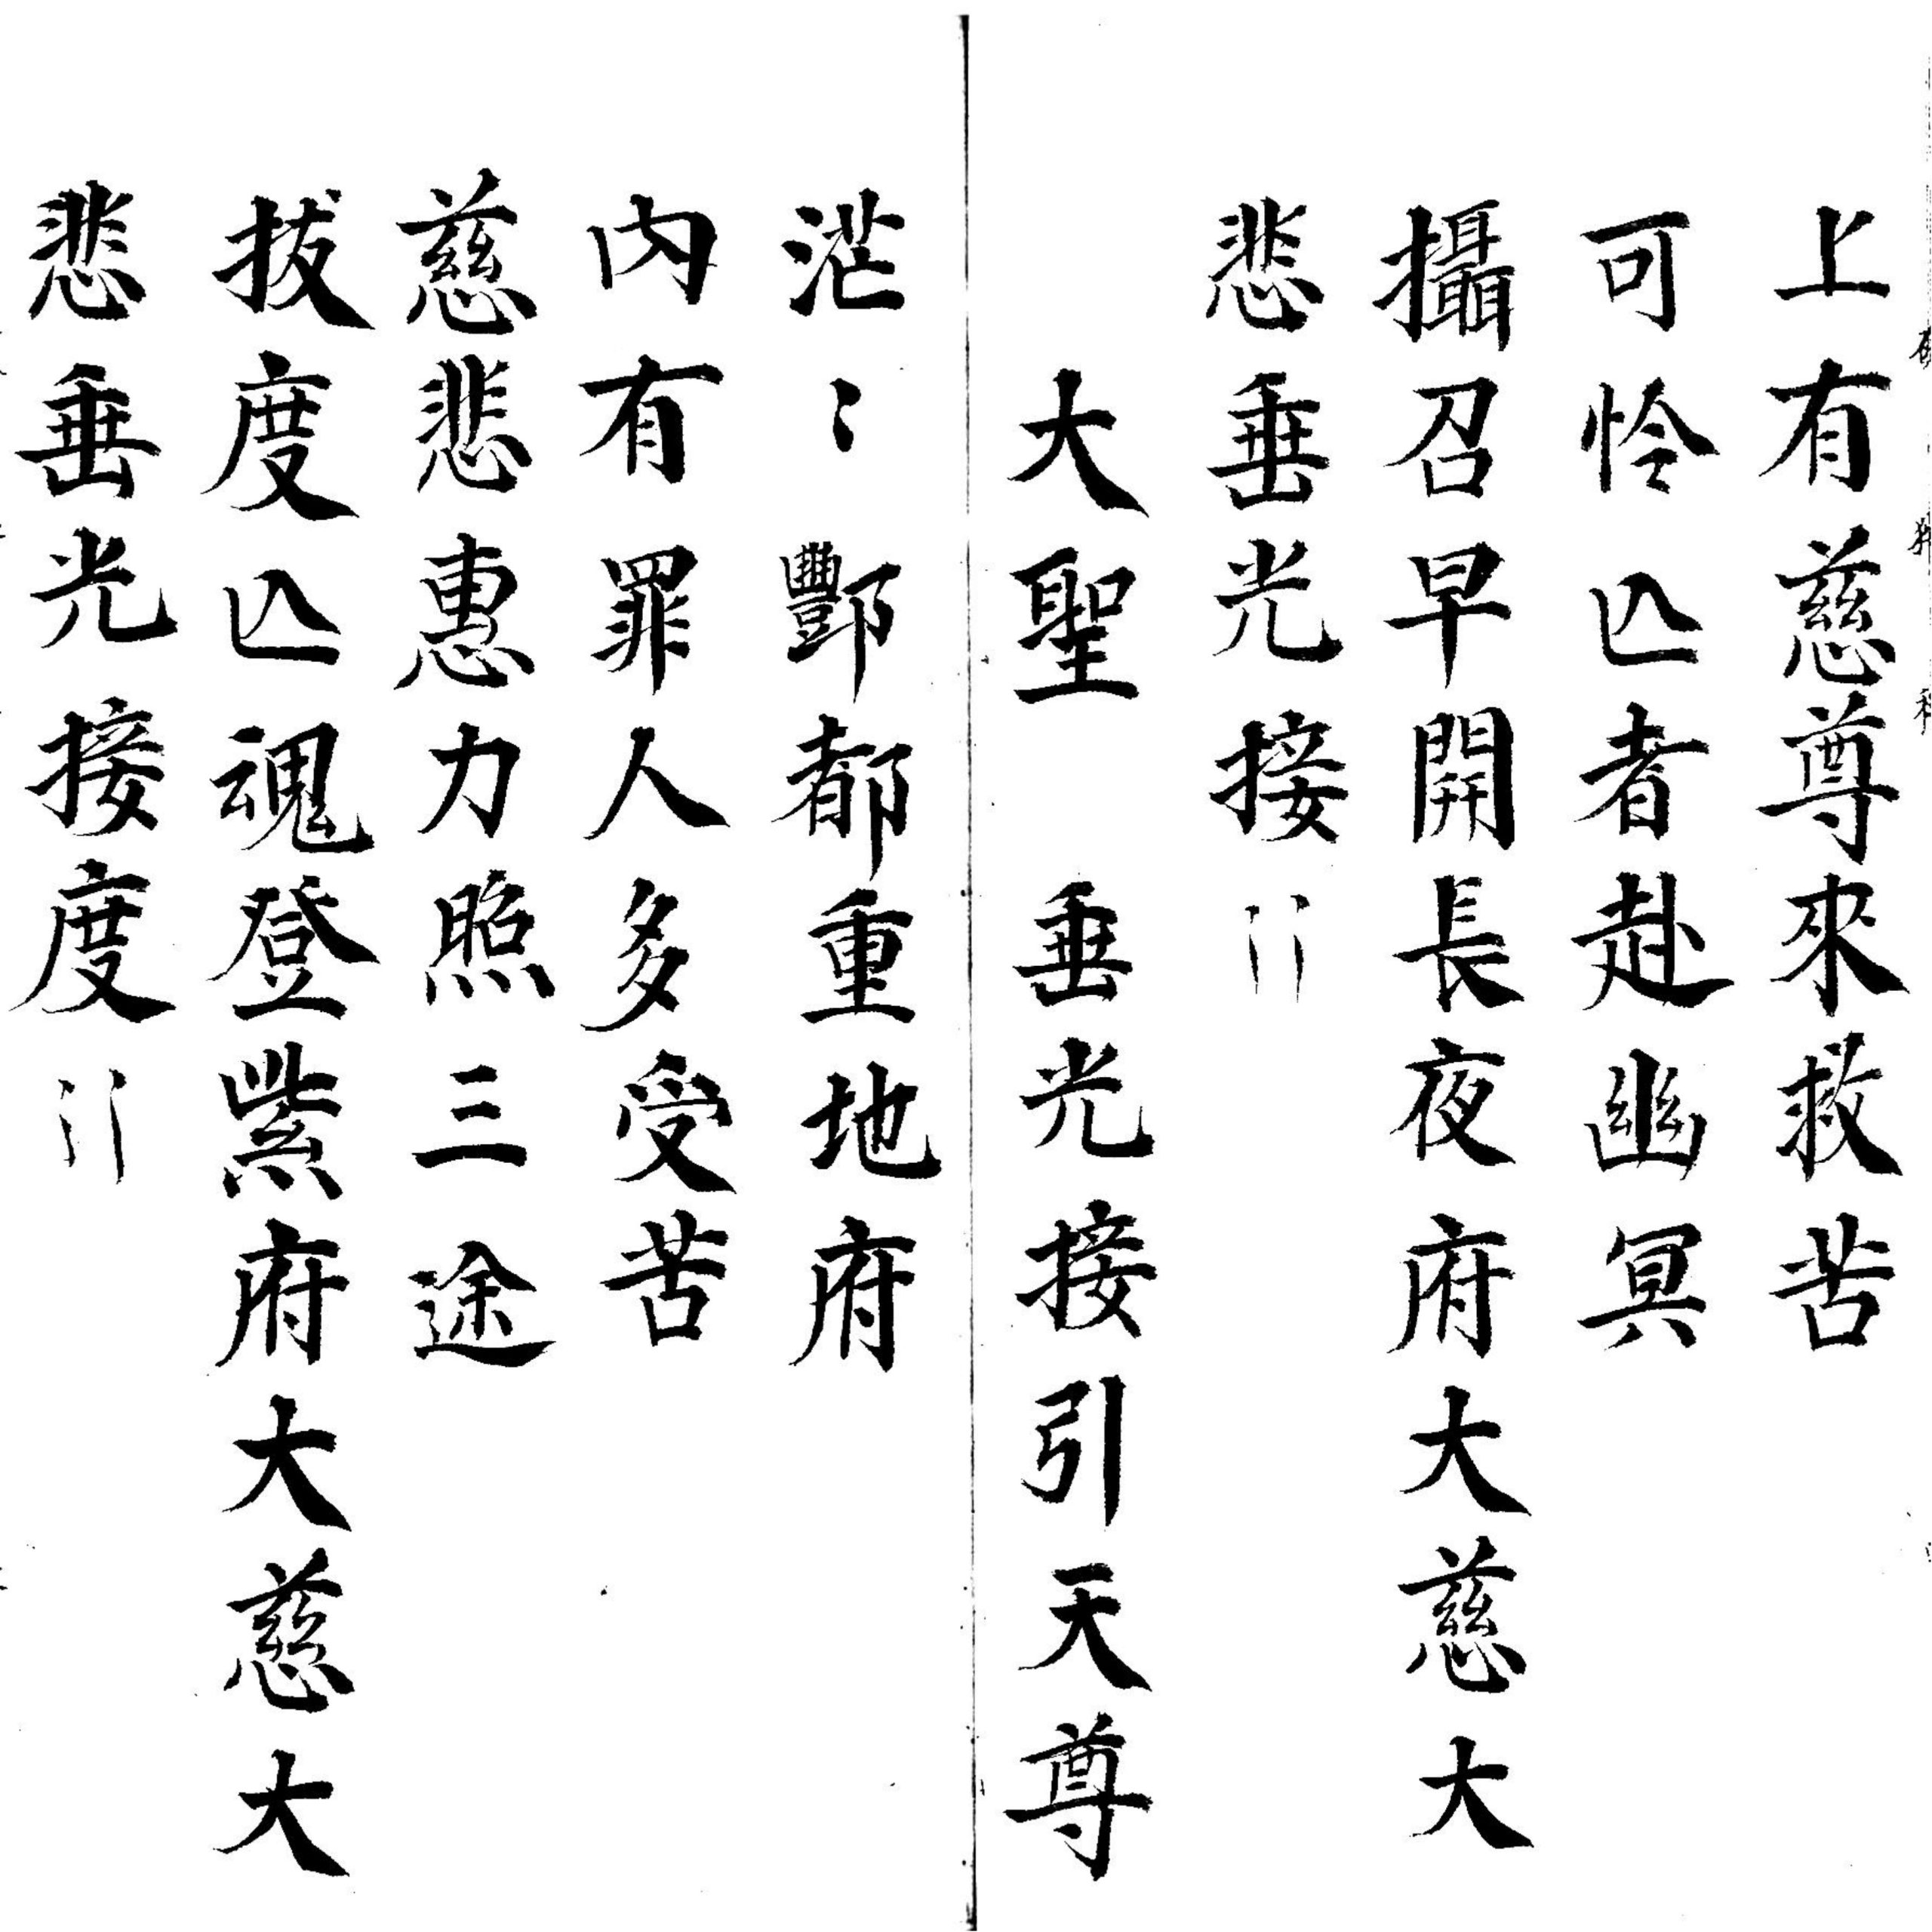 上有慈尊來救苦
可怜亾者赴幽冥
攝召早開長夜府大慈大
悲垂光接〻
大聖 垂光接引天尊
茫〻酆都重地府
內有罪人多受苦
慈悲惠力照三途
拔度亾魂登紫府大慈大
悲垂光接度〻